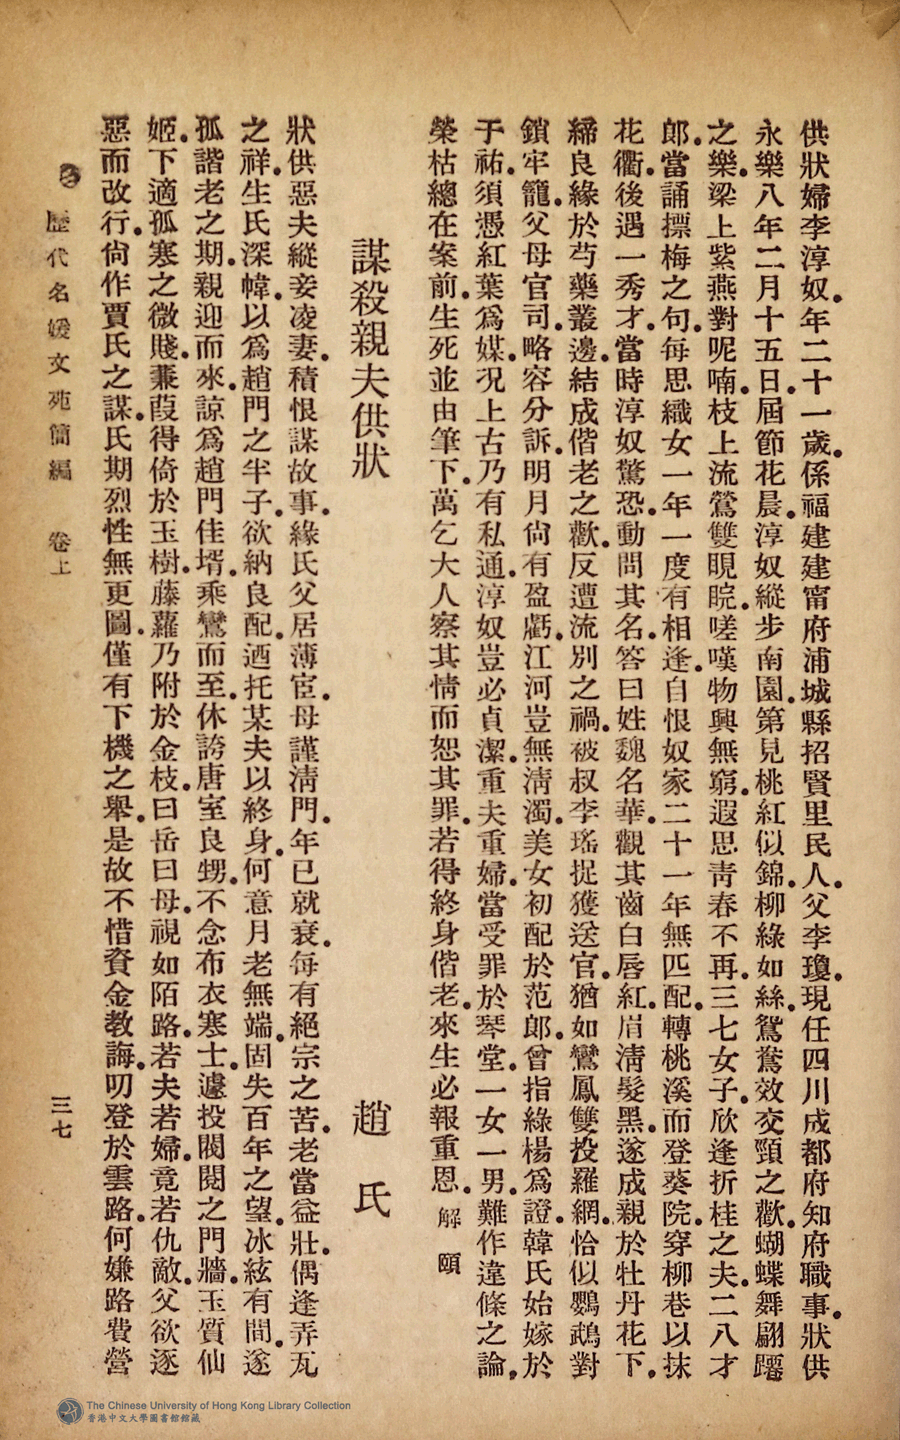 供狀婦李淳奴。年二十一歲。係福建建甯府浦城縣招賢里民人。父李瓊。現任四川成都府知府職事。狀供
永樂八年二月十五日。屆節花晨。淳奴縱步南園。第見桃紅似錦。柳綠如絲。鴛鴦效交頸之歡。蝴蝶舞翩躚
之樂。梁上紫燕對呢喃。枝上流鶯雙睍睆。嗟嘆物興無窮。遐思靑春不再。三七女子。欣逢折桂之夫。二八才
郎。當誦摽梅之句。每思織女一年一度有相逢。自恨奴家二十一年無匹配。轉桃溪而登葵院。穿柳巷以抹
花衢。後遇一秀才。當時淳奴驚恐。動問其名。答曰姓魏名華。觀其齒白唇紅。眉淸髮黑。遂成親於牡丹花下。
締良緣於芍藥叢邊。結成偕老之歡。反遭流別之禍。被叔李瑤捉獲送官。猶如鸞鳳雙投羅網。恰似鸚鵡對
鎖牢籠。父母官司。略容分訴。明月尙有盈虧。江河豈無淸濁。美女初配於范郎。曾指綠楊爲證。韓氏始嫁於
于祐。須憑紅葉爲媒。况上古乃有私通。淳奴豈必貞潔。重夫重婦。當受罪於琴堂。一女一男。難作違條之論。
榮枯總在案前。生死並由筆下。萬乞大人察其情而恕其罪。若得終身偕老。來生必報重恩。解頤
謀殺親夫供狀 趙氏
狀供惡夫縱妾凌妻。積恨謀故事。緣氏父居薄宦。母謹淸門。年已就衰。每有絕宗之苦。老當益壯。偶逢弄瓦
之祥。生氏深幃。以爲趙門之半子。欲納良配。迺托某夫以終身。何意月老無端。固失百年之望。冰絃有間。遂
孤諧老之期。親迎而來。諒爲趙門佳壻。乘鸞而至。休誇唐室良甥。不念布衣寒士。遽投閥閱之門牆。玉質仙
姬。下適孤寒之微賤。蒹葭得倚於玉樹。藤蘿乃附於金枝。曰岳曰母。視如陌路。若夫若婦。竟若仇敵。父欲逐
惡而改行。尙作賈氏之謀。氏期烈性無更圖。僅有下機之舉。是故不惜資金敎誨。叨登於雲路。何嫌路費營
歷代名媛文苑簡編 卷上 三七
The Chinese University of Hong Kong Library Collection
香港中文大學圖書館館藏